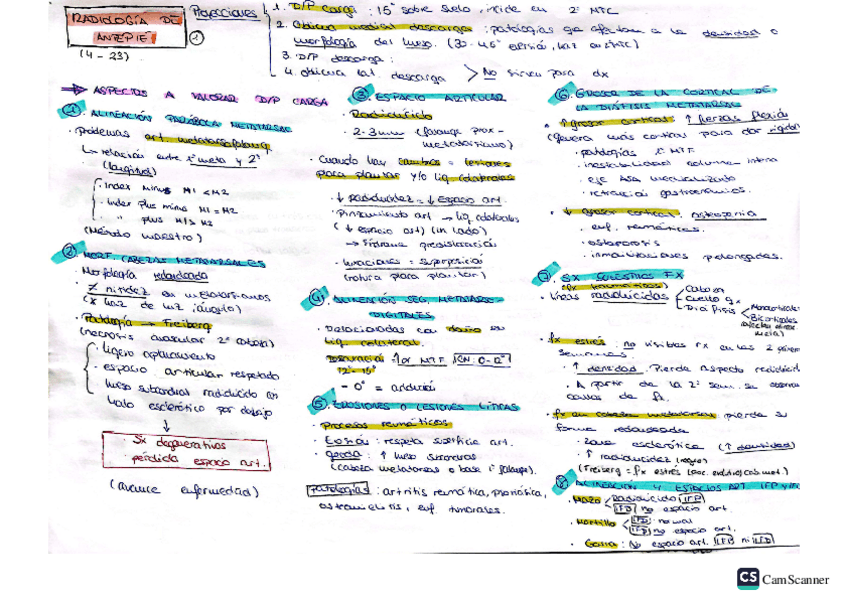 RADIOLOGÍA DE
ANTEPIE
①
(4-23)
Proyecciones
1. D/P carga: 15° sobre suelo, incide en 2º MTC
2. Oblicua medial descarga: patologías que afectan a la densidad o
morfología del hueso. (30-45°
3. D/P descarga:
4. oblicua lat. descarga > No sirven para dx
→ ASPECTOS A VALORAR D/P CARGA
① ALINEACIÓN PARÁBOLA METATARSAL
· Problemas art. metatarsofalang
↳ relación entre 1º meta y 2º
(longitud)
· Index minus M1 < M2
· Index plus minus M1 = M2
· " plus M1 > M2
(Método maestro)
② MORF. CABEZAS METATARSALES
· Morfología redondeada
· ≠ nitidez en metatarsianos
(x haz de luz, ángulo)
· Patología → Freiberg
(necrosis avascular 2º cabeza)
· ligero aplanamiento
· espacio articular respetado
· hueso subcondral radiolúcido con
halo esclerótico por debajo
↓
· Sx degenerativos
· pérdida espacio art.
(avance enfermedad)
③ ESPACIO ARTICULAR
· Radiolúcido
· 2-3mm (falange prox-
metatarsiano)
· Cuando hay cambios = lesiones
placa plantar y/o lig. colaterales
· ↓ radiolucidez = ↓ espacio art.
· Pinzamiento art → lig. colaterales
(↓ espacio art) (un lado)
→ Síndrome predislocación
· luxaciones = superposición
(rotura placa plantar)
④ ALINEACIÓN SEG. METATARSO-
DIGITALES
· Relacionadas con daño en
lig. colateral.
1ª MTF
· - 0° = aducción
⑤ EROSIONES O LESIONES LÍTICAS
· Procesos reumáticos
· Erosión: respeta superficie art.
· geoda: ↑ hueso subcondral
(cabeza metatarsiano o base 1ª falange).
Patologías: artritis reumática, psoriática,
osteomielitis, enf. tumorales.
⑥ GROSOR DE LA CORTICAL DE
LA DIÁFISIS METATARSAL
· ↑ grosor cortical: ↑ fuerzas flexión
(genera más cortical para dar rigidez
· patologías 1ª MTF
· inestabilidad columna interna
· eje ASA medializado
· retracción gastrocnemios.
· ↓ grosor cortical, osteopenia
· enf. reumáticas.
· osteoporosis
· inmovilizaciones prolongadas.
⑦ SX SUGESTIVAS FX
(fx traumáticas)
· líneas radiolúcidas
Cabeza
Cuello qx
Diáfisis
Monocorticales
Bicorticales
· fx estrés: no visibles rx en las 2 primeras
semanas.
· ↑ densidad. Pierde aspecto radiolúcido
· A partir de la 2ª sem. se observa
callos de fx.
· fx en cabeza metatarsal: pierde su
forma redondeada
· Zona esclerótica (↑ densidad)
· ↑ radiolucidez (negro)
(Freiberg = fx estrés
⑧ ALINEACIÓN Y ESPACIOS ART. IFP y IFD
· Mazo
Radiolúcido IFP
IFD no espacio art.
· Martillo
IFD: normal
IFP no espacio art.
· Garra: No espacio art. IFP ni IFD
CS CamScanner